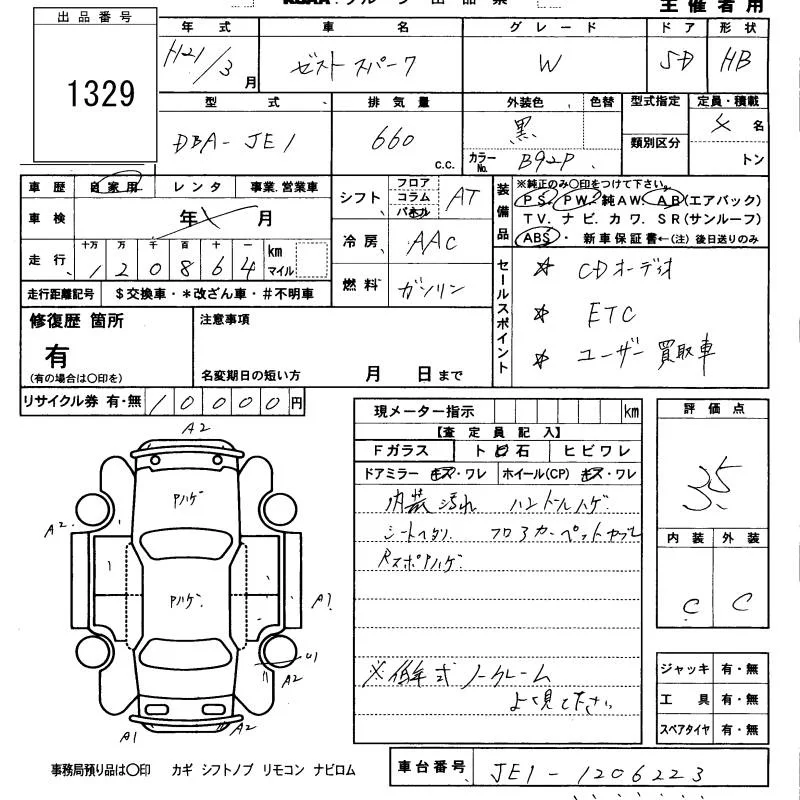 主催者用
出品番号
1329
年式 車名 グレード ドア 形状
H21/3月 ゼストスパーク W 5D HB
型式 排気量 外装色 色替 型式指定 定員・積載
DBA-JE1 660 c.c. 黒 4名
カラーNo. B92P 類別区分 トン
車歴 自家用 レンタ 事業.営業車
シフト フロア コラム パネル AT
装備品
※純正のみ〇印をつけて下さい。
PS. PW. 純AW. AB(エアバック)
TV. ナビ. カワ. SR(サンルーフ)
ABS・ 新車保証書←(注)後日送りのみ
車検 年 月
冷房 AAC
走行 十万 万 千 百 十 一 km マイル
120864
燃料 ガソリン
走行距離記号 $交換車・*改ざん車・#不明車
セールスポイント
☆ CDオーディオ
☆ ETC
☆ ユーザー買取車
修復歴 箇所
有
(有の場合は〇印を)
注意事項
名変期日の短い方 月 日まで
リサイクル券 有・無 10000円
現メーター指示 km
【査定員記入】
Fガラス ト石 ヒビワレ
ドアミラー キズ・ワレ ホイール(CP) キズ・ワレ
内装汚れ ハンドルハゲ
シートヘタリ フロアカーペット
RスポPハゲ
※低年式 ノークレーム
よく見て下さい
評価点
3.5
内装 外装
C C
A2
Pハゲ
A2
Pハゲ.
A1
U1
A2
A1
A2
ジャッキ 有・無
工具 有・無
スペアタイヤ 有・無
事務局預り品は〇印 カギ シフトノブ リモコン ナビロム
車台番号 JE1-1206223